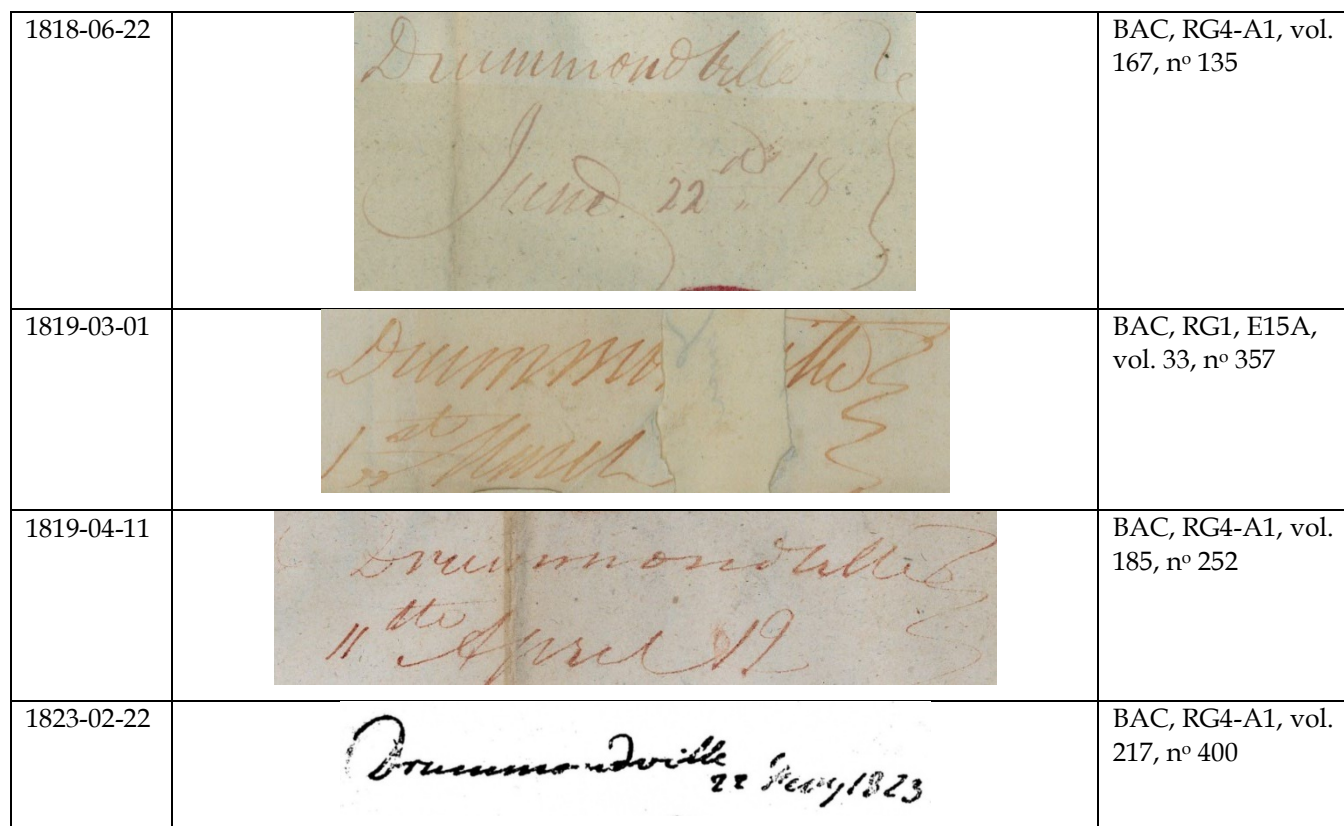 1818-06-22
Drummondville
June 22d 18
BAC, RG4-A1, vol.
167, nº 135
1819-03-01
Drummo ille
1st March
BAC, RG1, E15A,
vol. 33, nº 357
1819-04-11
Drummondville
11th April 19
BAC, RG4-A1, vol.
185, nº 252
1823-02-22
Drummondville
22 1823
BAC, RG4-A1, vol.
217, nº 400